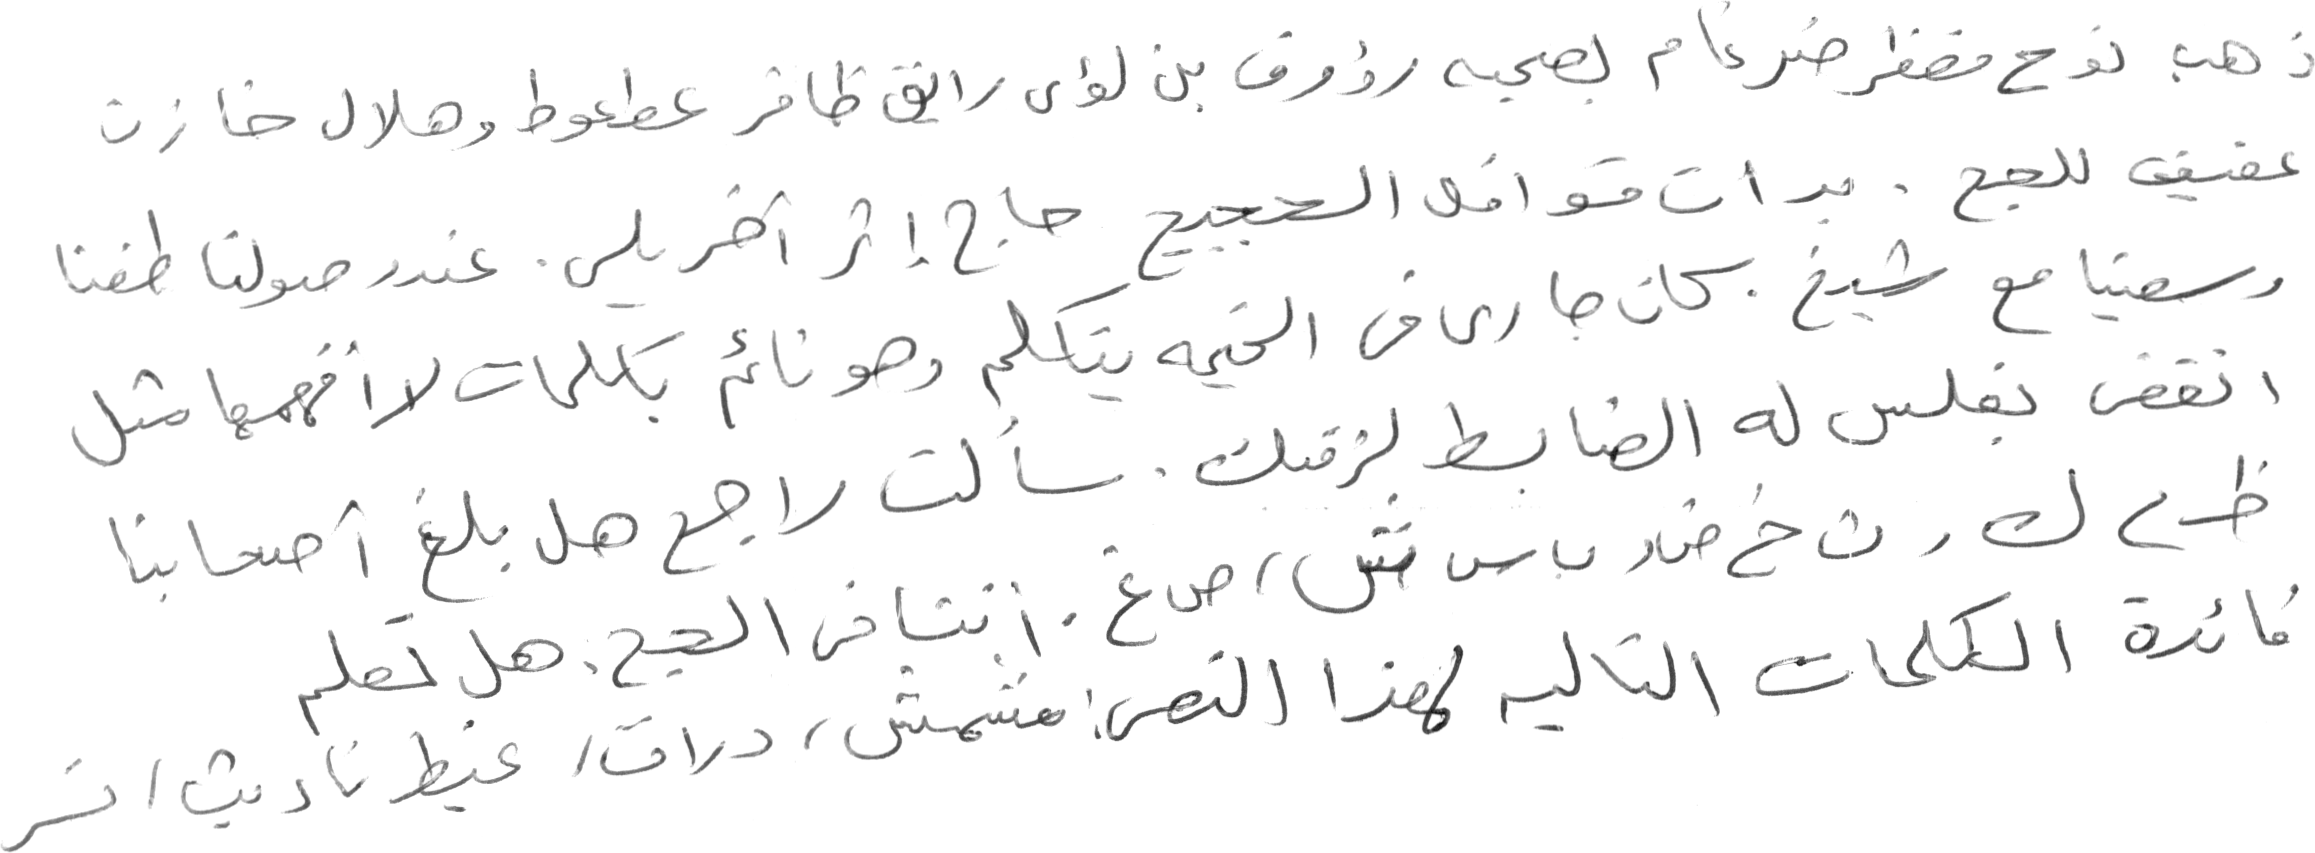 ذهب نوح مضفر ضرغام بصحبه رؤوف بن لؤى رايق ظافر عطعوط وهلال خازن
عفيفى للحج . بدات قوافل الحجيج حاج إثر أخر يلى . عند وصولنا طفنا
وسعينا مع شيخ . كان جارى فى الخيمه يتكلم وهو نائم بكلمات لا أفهمها مثل
انقض بفلس له الضابط لزقك . سألت راجع هل بلغ أصحابنا
ظ ء ك ر ث خ ض د ب س ش ، ص غ . أنتنا فى الحج . هل تعلم
فائدة الكلمات التاليه لهذا النص : مشمش ، دراق ، غيظ ناديث ، نسر